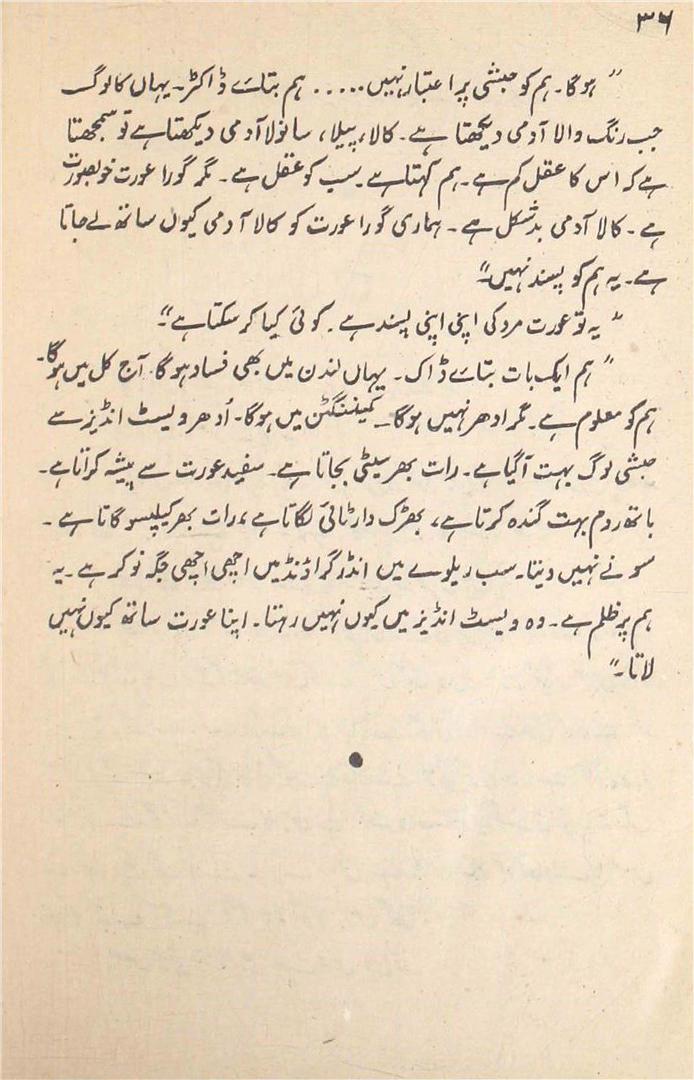 ۳۶
" ہوگا۔ ہم کو حبشی پر اعتبار نہیں ..... ہم بتائے ڈاکٹر۔ یہاں کا لوگ
جب رنگ والا آدمی دیکھتا ہے۔ کالا، پیلا، سانولا آدمی دیکھتا ہے تو سمجھتا
ہے کہ اس کا عقل کم ہے۔ ہم کہتا ہے سب کو عقل ہے۔ مگر گورا عورت خوبصورت
ہے۔ کالا آدمی بدشکل ہے۔ ہماری گورا عورت کو کالا آدمی کیوں ساتھ لے جاتا
ہے۔ یہ ہم کو پسند نہیں۔"
" یہ تو عورت مرد کی اپنی اپنی پسند ہے۔ کوئی کیا کر سکتا ہے۔"
" ہم ایک بات بتائے ڈاک۔ یہاں لندن میں بھی فساد ہوگا۔ آج کل میں ہوگا۔
ہم کو معلوم ہے۔ مگر ادھر نہیں ہوگا۔ کیننگٹن میں ہوگا۔ اُدھر ویسٹ انڈیز سے
حبشی لوگ بہت آگیا ہے۔ رات بھر سیٹی بجاتا ہے۔ سفید عورت سے پیشہ کراتا ہے۔
باتھ روم بہت گندہ کرتا ہے، بھڑک دار ٹائی لگاتا ہے، رات بھر کیلپسو گاتا ہے۔
سونے نہیں دیتا۔ سب ریلوے میں انڈر گراؤنڈ میں اچھی اچھی جگہ نوکر ہے۔ یہ
ہم پر ظلم ہے۔ وہ ویسٹ انڈیز میں کیوں نہیں رہتا۔ اپنا عورت ساتھ کیوں نہیں
لاتا۔"